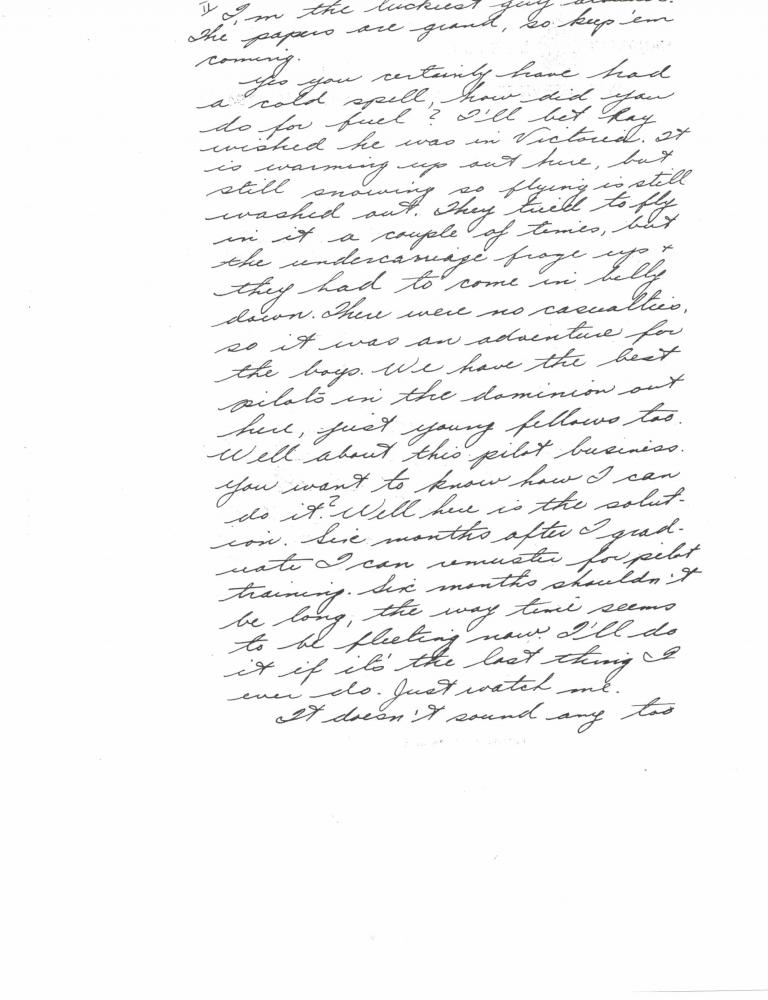 II I'm the luckiest guy around.
The papers are grand, so keep 'em
coming.
Yes you certainly have had
a cold spell, how did you
do for fuel? I'll bet Ray
wished he was in Victoria. It
is warming up out here, but
still snowing so flying is still
washed out. They tried to fly
in it a couple of times, but
the undercarriage froze up +
they had to come in belly
down. There were no casualties,
so it was an adventure for
the boys. We have the best
pilots in the dominion out
here, just young fellows too.
Well about this pilot business.
You want to know how I can
do it? Well here is the solut-
ion. Six months after I grad-
uate I can remuster for pilot
training. Six months shouldn't
be long, the way time seems
to be fleeting now. I'll do
it if it's the last thing I
ever do. Just watch me.
It doesn't sound any too